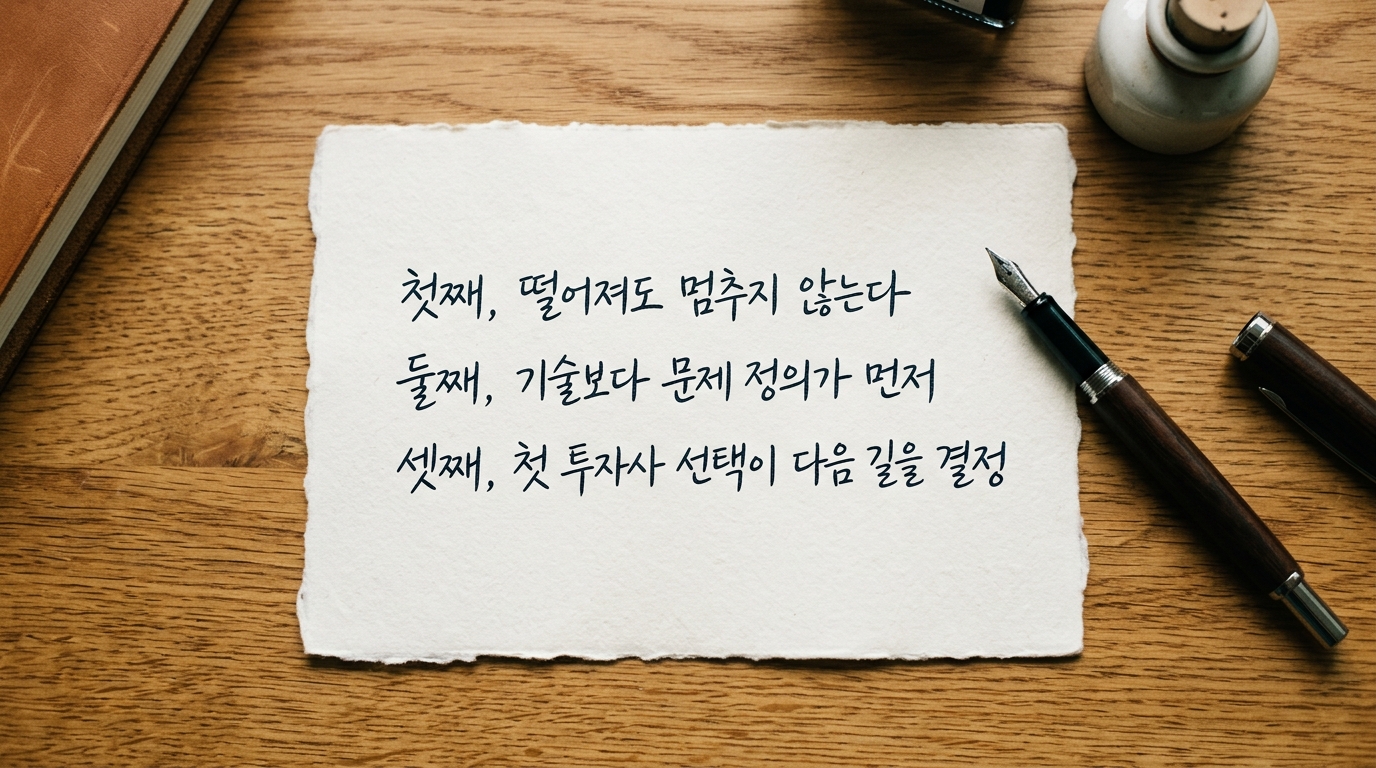 첫째, 떨어져도 멈추지 않는다
둘째, 기술보다 문제 정의가 먼저
셋째, 첫 투자사 선택이 다음 길을 결정